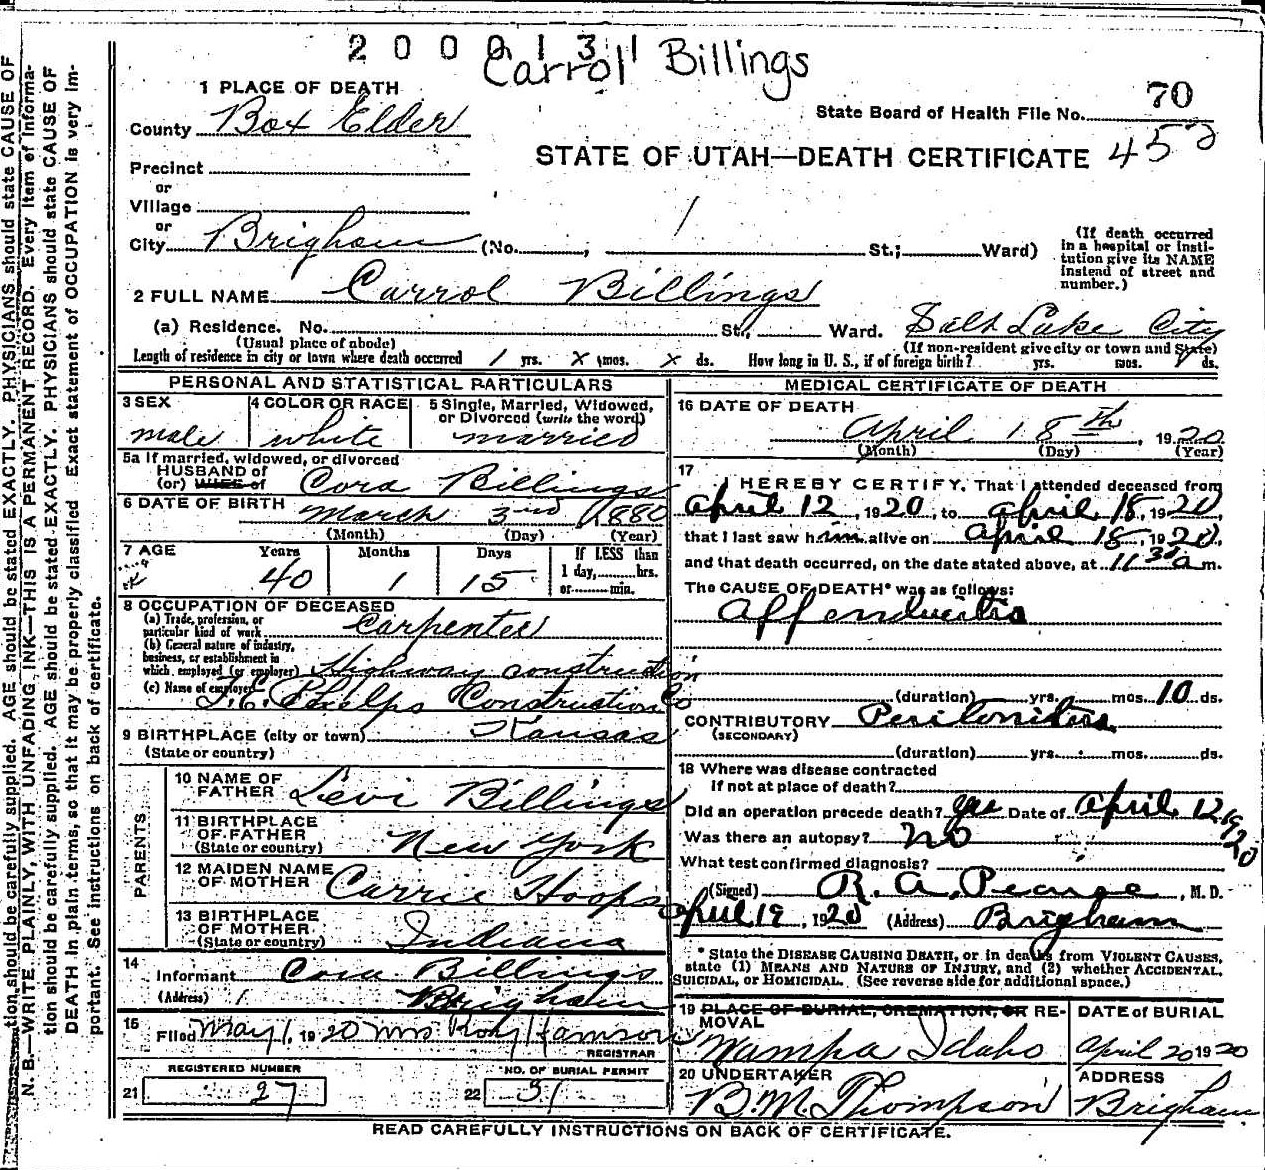 2 0 0 0 1 3 1
Carrol Billings
1 PLACE OF DEATH
County Box Elder
State Board of Health File No. 70
STATE OF UTAH—DEATH CERTIFICATE 452
Precinct
or
Village
or
City Brigham (No. , St.; Ward)
(If death occurred
in a hospital or insti-
tution give its NAME
instead of street and
number.)
2 FULL NAME Carrol Billings
(a) Residence. No. St., Ward. Salt Lake City
(Usual place of abode) (If non-resident give city or town and State)
Length of residence in city or town where death occurred 1 yrs. X mos. X ds. How long in U. S., if of foreign birth? yrs. mos. ds.
PERSONAL AND STATISTICAL PARTICULARS
3 SEX male
4 COLOR OR RACE white
5 Single, Married, Widowed,
or Divorced (write the word)
married
5a If married, widowed, or divorced
HUSBAND of
(or) WIFE of Cora Billings
6 DATE OF BIRTH March 3rd 1880
(Month) (Day) (Year)
7 AGE Years Months Days If LESS than
1 day, hrs.
or min.
40 1 15
8 OCCUPATION OF DECEASED
(a) Trade, profession, or
particular kind of work Carpenter
(b) General nature of industry,
business, or establishment in
which employed (or employer) Highway construction
(c) Name of employer J. E. Phelps Construction Co
9 BIRTHPLACE (city or town) Kansas
(State or country)
PARENTS
10 NAME OF
FATHER Levi Billings
11 BIRTHPLACE
OF FATHER
(State or country) New York
12 MAIDEN NAME
OF MOTHER Carrie Hoops
13 BIRTHPLACE
OF MOTHER
(State or country) Indiana
14
Informant Cora Billings
(Address) Brigham
15
Filed May 1, 1920 Mrs Roy Hamson
REGISTRAR
REGISTERED NUMBER
21 27
NO. OF BURIAL PERMIT
22 31
MEDICAL CERTIFICATE OF DEATH
16 DATE OF DEATH
April 18th, 1920
(Month) (Day) (Year)
17
I HEREBY CERTIFY, That I attended deceased from
April 12, 1920, to April 18, 1920,
that I last saw him alive on April 18, 1920,
and that death occurred, on the date stated above, at 11 30 a m.
The CAUSE OF DEATH* was as follows:
Appendicitis
(duration) yrs. mos. 10 ds.
CONTRIBUTORY Peritonitis
(SECONDARY)
(duration) yrs. mos. ds.
18 Where was disease contracted
if not at place of death?
Did an operation precede death? yes Date of April 12, 1920
Was there an autopsy? No
What test confirmed diagnosis?
(Signed) R. A. Pearse, M. D.
April 19, 1920 (Address) Brigham
* State the DISEASE CAUSING DEATH, or in deaths from VIOLENT CAUSES,
state (1) MEANS AND NATURE OF INJURY, and (2) whether ACCIDENTAL,
SUICIDAL, or HOMICIDAL. (See reverse side for additional space.)
19 PLACE OF BURIAL, CREMATION, OR RE-
MOVAL
Nampa Idaho
DATE of BURIAL
April 20 1920
20 UNDERTAKER
B. M. Thompson
ADDRESS
Brigham
READ CAREFULLY INSTRUCTIONS ON BACK OF CERTIFICATE.
N. B.—WRITE PLAINLY, WITH UNFADING INK—THIS IS A PERMANENT RECORD. Every item of informa-
tion should be carefully supplied. AGE should be stated EXACTLY. PHYSICIANS should state CAUSE OF
DEATH in plain terms, so that it may be properly classified Exact statement of OCCUPATION is very im-
portant. See instructions on back of certificate.